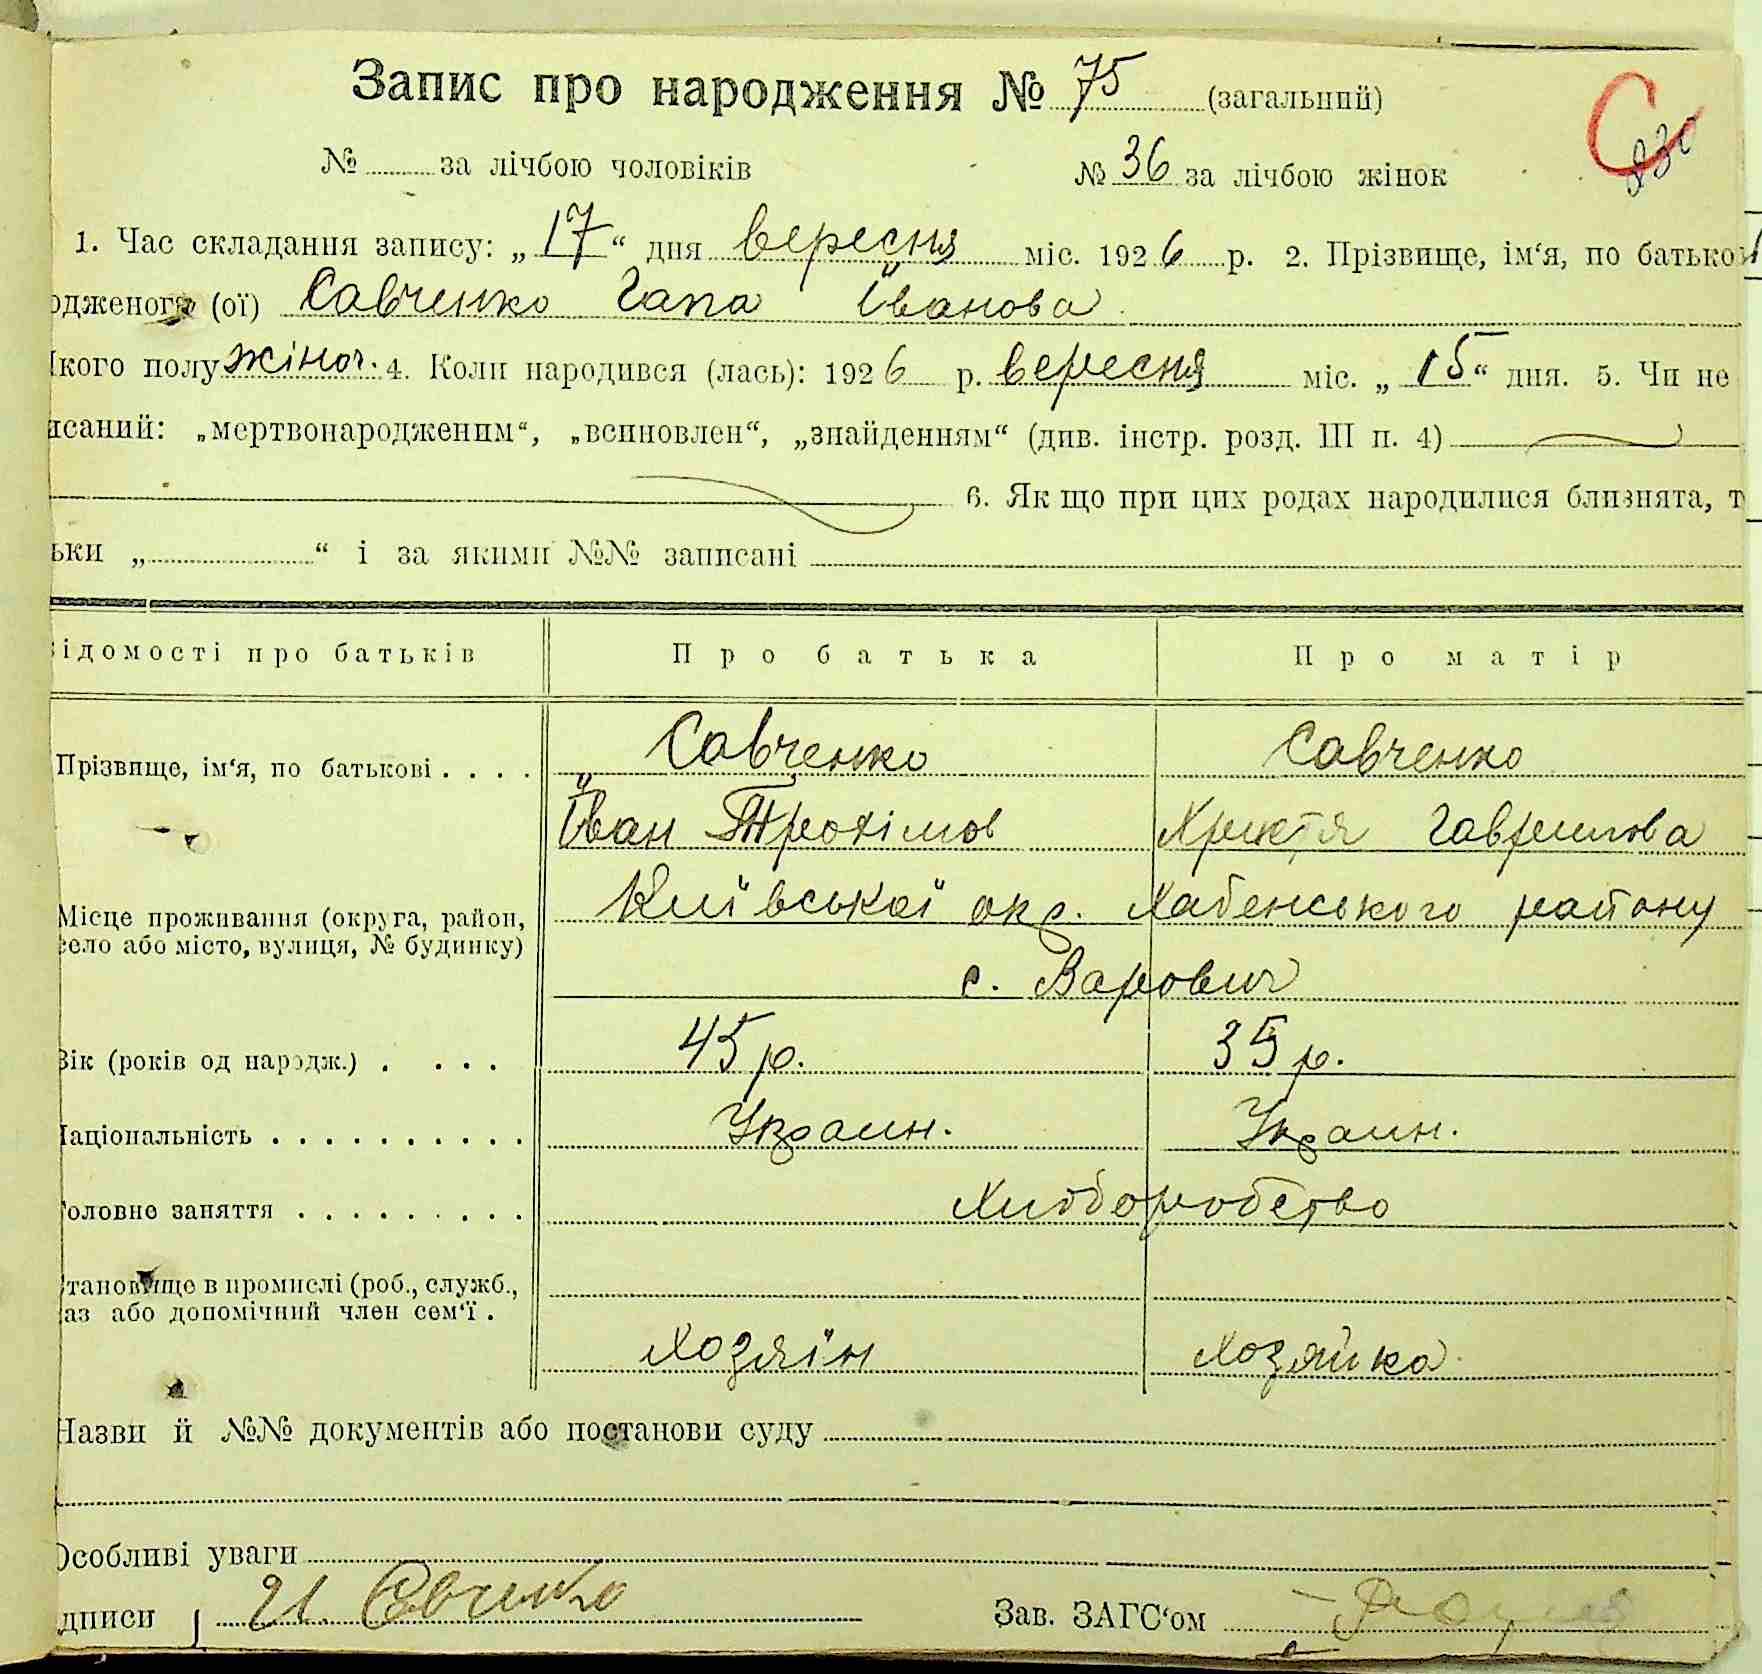 Запис про народження № 75 (загальний)
С
830
№ за лічбою чоловіків № 36 за лічбою жінок
1. Час складання запису: „17“ дня вересня міс. 1926 р. 2. Прізвище, ім‘я, по батькові
одженого (ої) Савченко Гапа Іванова
кого полу жіноч. 4. Коли народився (лась): 1926 р. вересня міс. „15“ дня. 5. Чи не
исаний: „мертвонародженим“, „всиновлен“, „знайденням“ (див. інстр. розд. III п. 4)
6. Як що при цих родах народилися близнята, т
ьки „ “ і за якими №№ записані
ідомості про батьків Про батька Про матір
Прізвище, ім‘я, по батькові . . . . Савченко Савченко
Іван Трохімов Христя Гаврилова
Місце проживання (округа, район, Київської окр. Хабенського району
село або місто, вулиця, № будинку)
с. Варович
Вік (років од народж.) . . . . 45 р. 35 р.
Національність . . . . . . . . . . Украин. Украин.
Головне заняття . . . . . . . . . Хліборобство
тановище в промислі (роб., служб.,
аз або допомічний член сем‘ї .
Хозяїн Хозяйка
Назви й №№ документів або постанови суду
Особливі уваги
дписи И. Савченко Зав. ЗАГС‘ом